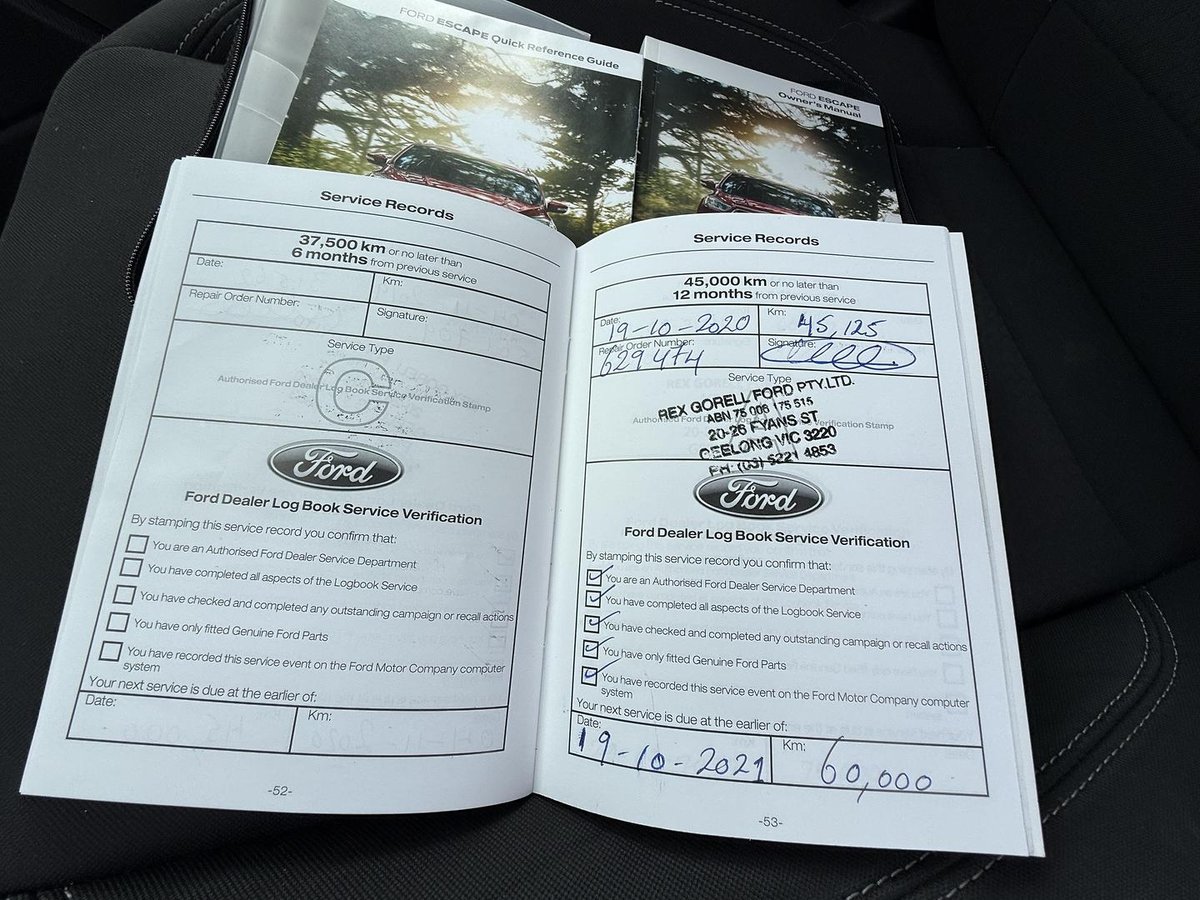 FORD ESCAPE Quick Reference Guide
FORD ESCAPE
Owner's Manual
Service Records
37,500 km or no later than
6 months from previous service
Date:
Km:
Repair Order Number:
Signature:
Service Type
C
Authorised Ford Dealer Log Book Service Verification Stamp
Ford
Ford Dealer Log Book Service Verification
By stamping this service record you confirm that:
You are an Authorised Ford Dealer Service Department
You have completed all aspects of the Logbook Service
You have checked and completed any outstanding campaign or recall actions
You have only fitted Genuine Ford Parts
You have recorded this service event on the Ford Motor Company computer
system
Your next service is due at the earlier of:
Date:
Km:
-52-
Service Records
45,000 km or no later than
12 months from previous service
Date: 19-10-2020
Km: 45,125
Repair Order Number:
Signature:
Service Type
REX GORELL FORD PTY.LTD.
ABN 75 006 175 515
20-26 FYANS ST
GEELONG VIC 3220
PH: (03) 5221 4853
Verification Stamp
Ford
Ford Dealer Log Book Service Verification
By stamping this service record you confirm that:
You are an Authorised Ford Dealer Service Department
You have completed all aspects of the Logbook Service
You have checked and completed any outstanding campaign or recall actions
You have only fitted Genuine Ford Parts
You have recorded this service event on the Ford Motor Company computer
system
Your next service is due at the earlier of:
Date: 19-10-2021
Km: 60,000
-53-